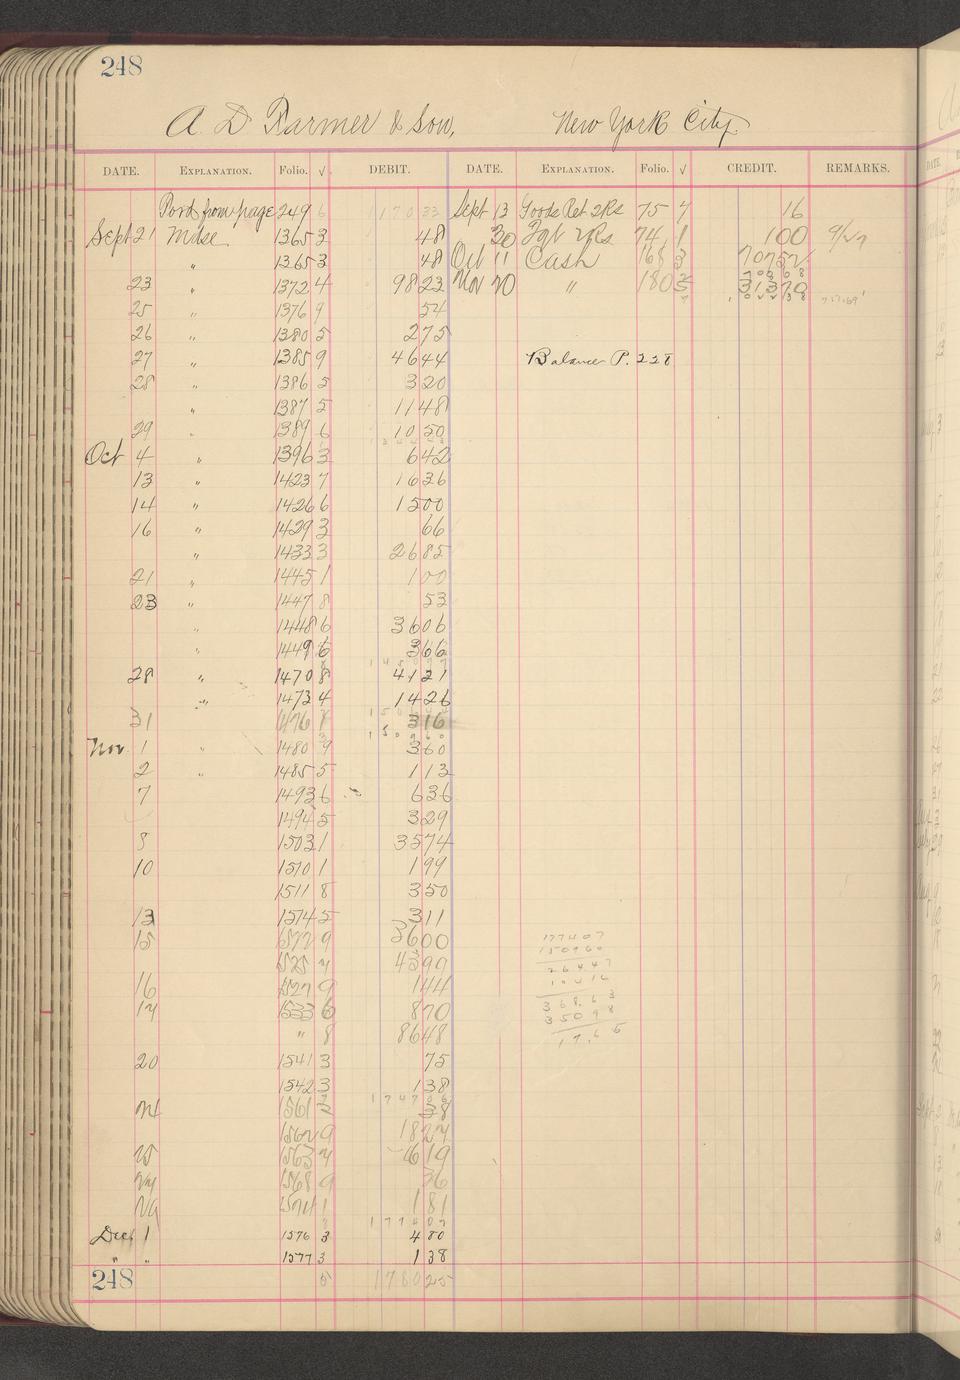 248
A. D. Farmer & Son, New York City.
DATE. EXPLANATION. Folio. √ DEBIT. DATE. EXPLANATION. Folio. √ CREDIT. REMARKS.
Ford from page 249 6 1170 33 Sept 13 Goods Ret 2Rs 75 7 16
Sept 21 Mdse 1365 3 48 30 Fgt 2Rs 74 1 1 00
" 1365 3 48 Oct 11 Cash 168 3 707 52
23 " 1372 4 98 23 Nov 20 " 180 5 313 70
25 " 1376 9 54
26 " 1380 5 2 75
27 " 1385 9 46 44 Balance P. 228
28 " 1386 5 3 20
" 1387 5 11 48
29 " 1389 6 10 50
Oct 4 " 1396 3 6 42
13 " 1423 7 16 36
14 " 1426 6 15 00
16 " 1429 3 66
" 1433 3 26 85
21 " 1445 1 1 00
23 " 1447 8 53
" 1448 6 36 06
" 1449 6 3 66
28 " 1470 8 41 21
" 1473 4 14 26
31 1476 8 3 16
1509 60
Nov. 1 " 1480 9 3 60
2 " 1485 5 1 13
7 1493 6 6 36
1494 5 3 29
8 1503 1 35 74
10 1510 1 1 99
1511 8 3 50
13 1514 5 3 11
15 1522 9 36 00
1774 07
1509 60
1525 43 99
264 47
16 1527 9 1 44
104 16
17 1533 6 8 70
368.63
350 98
" 8 86 48
17.65
20 1541 3 75
1542 3 1 38
1747 06
1561 2 38
1562 9 18 24
1563 6 19
1568 9 36
1574 1 1 81
1774 07
Dec. 1 1576 3 4 80
" " 1577 3 1 38
248 5 1780 25